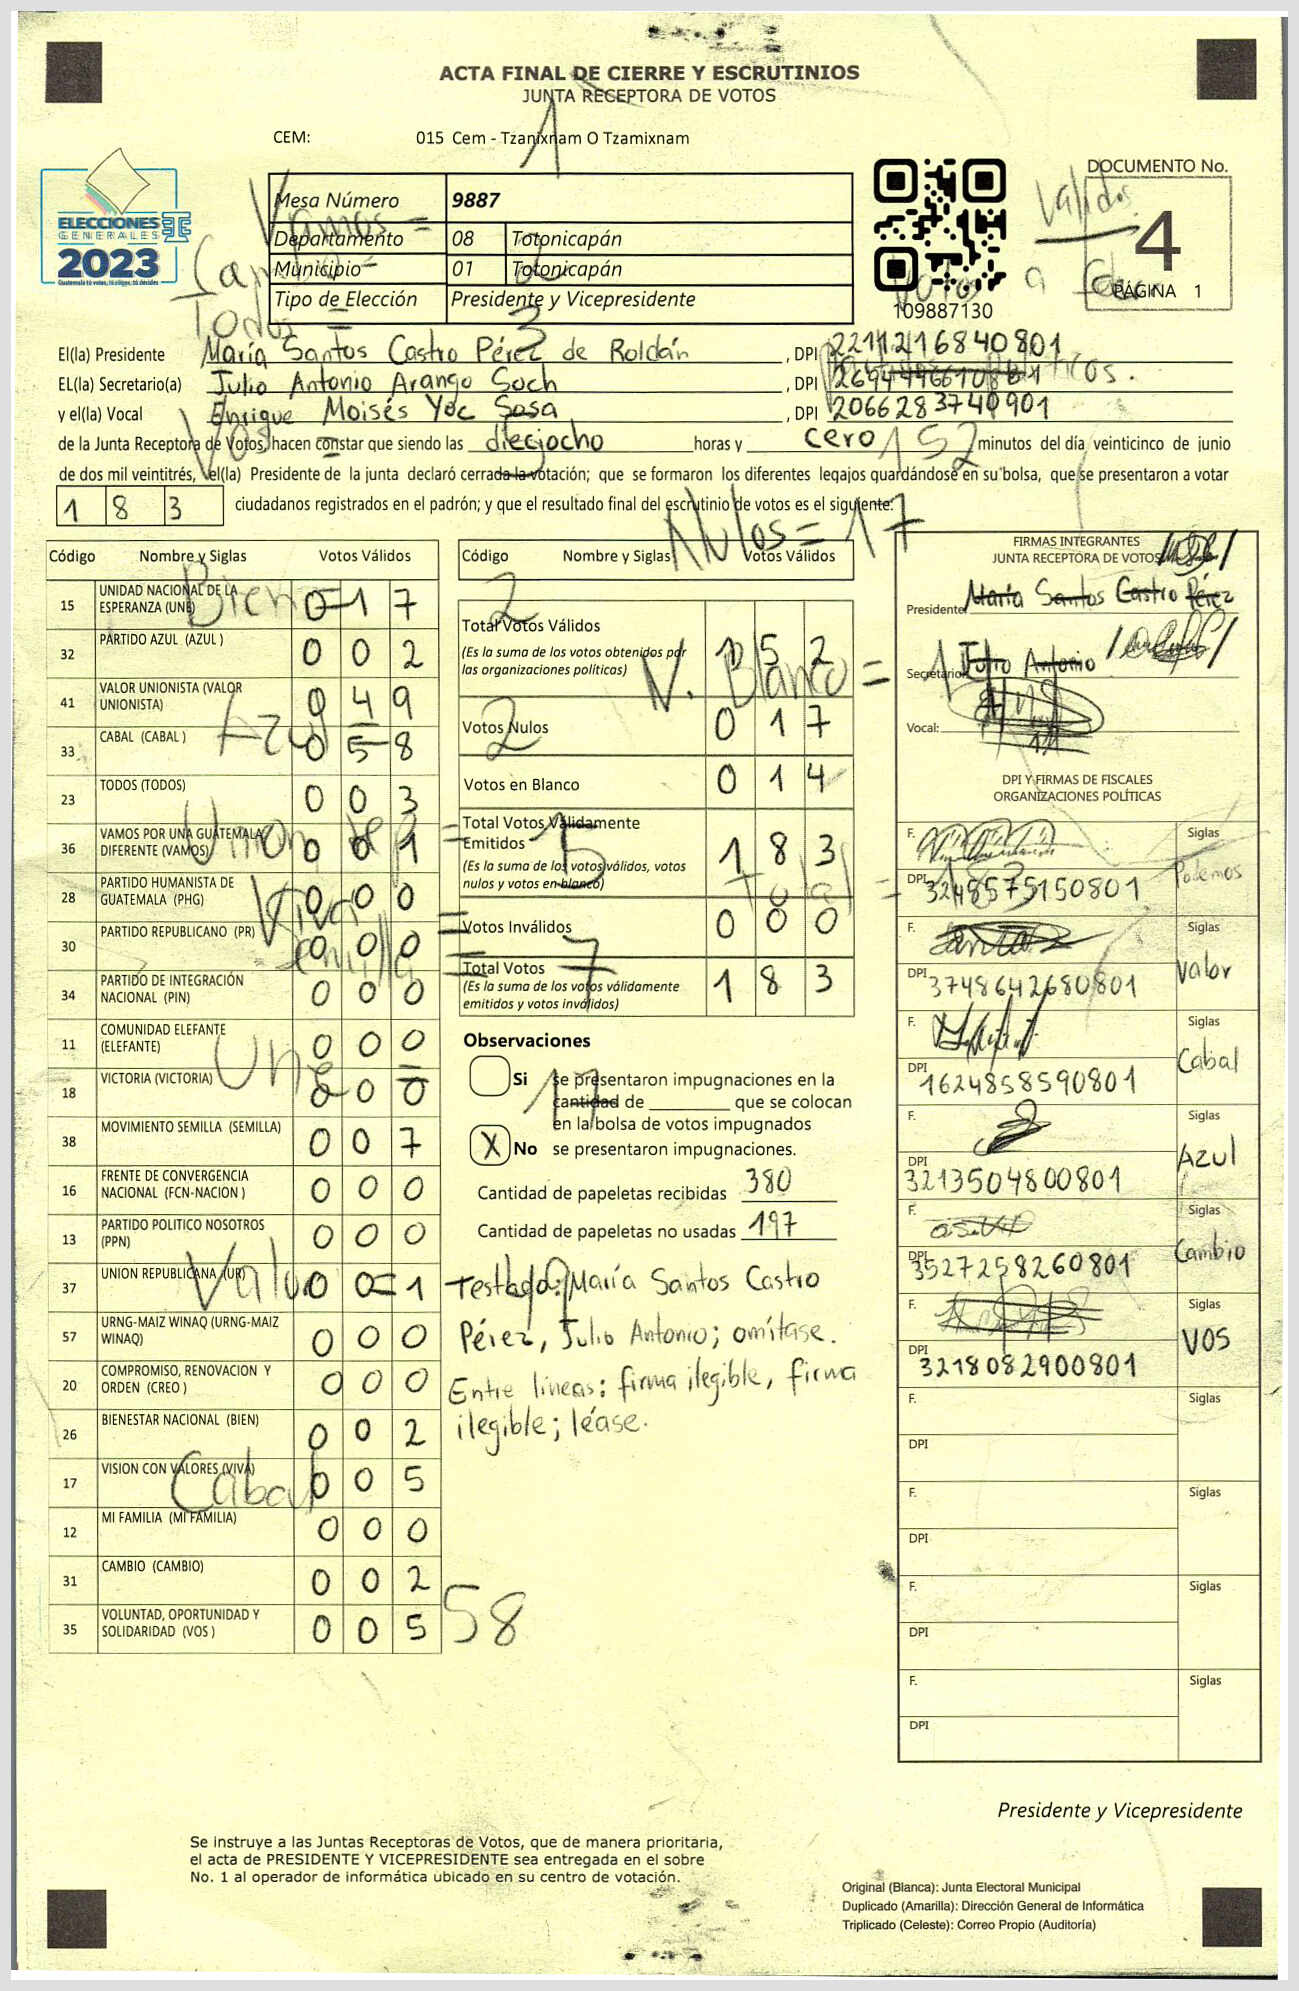 ACTA FINAL DE CIERRE Y ESCRUTINIOS
JUNTA RECEPTORA DE VOTOS
CEM: 015 Cem - Tzanixnam O Tzamixnam
1
ELECCIONES
GENERALES
2023
Guatemala tú votas, tú eliges, tú decides
Mesa Número 9887
Departamento 08 Totonicapán
Municipio 01 Totonicapán
Tipo de Elección Presidente y Vicepresidente
109887130
DOCUMENTO No.
4
PÁGINA 1
Validos
Vamos =
Todos =
3
El(la) Presidente María Santos Castro Pérez de Roldán, DPI 2211216840801
EL(la) Secretario(a) Julio Antonio Arango Soch, DPI
y el(la) Vocal Enrique Moisés Yoc Sosa, DPI 2066283740901
de la Junta Receptora de Votos, hacen constar que siendo las dieciocho horas y cero minutos del día veinticinco de junio
152
de dos mil veintitrés, el(la) Presidente de la junta declaró cerrada la votación; que se formaron los diferentes legajos guardándose en su bolsa, que se presentaron a votar
183 ciudadanos registrados en el padrón; y que el resultado final del escrutinio de votos es el siguiente:
Nulos = 17
Código Nombre y Siglas Votos Válidos
15 UNIDAD NACIONAL DE LA ESPERANZA (UNE) 0 1 7
32 PARTIDO AZUL (AZUL ) 0 0 2
41 VALOR UNIONISTA (VALOR UNIONISTA) 0 4 9
33 CABAL (CABAL ) 0 5 8
23 TODOS (TODOS) 0 0 3
36 VAMOS POR UNA GUATEMALA DIFERENTE (VAMOS) 0 0 1
28 PARTIDO HUMANISTA DE GUATEMALA (PHG) 0 0 0
30 PARTIDO REPUBLICANO (PR) 0 0 0
34 PARTIDO DE INTEGRACIÓN NACIONAL (PIN) 0 0 0
11 COMUNIDAD ELEFANTE (ELEFANTE) 0 0 0
18 VICTORIA (VICTORIA) 0 0 0
38 MOVIMIENTO SEMILLA (SEMILLA) 0 0 7
16 FRENTE DE CONVERGENCIA NACIONAL (FCN-NACION ) 0 0 0
13 PARTIDO POLITICO NOSOTROS (PPN) 0 0 0
37 UNION REPUBLICANA (UR) 0 0 1
57 URNG-MAIZ WINAQ (URNG-MAIZ WINAQ) 0 0 0
20 COMPROMISO, RENOVACION Y ORDEN (CREO ) 0 0 0
26 BIENESTAR NACIONAL (BIEN) 0 0 2
17 VISION CON VALORES (VIVA) 0 0 5
12 MI FAMILIA (MI FAMILIA) 0 0 0
31 CAMBIO (CAMBIO) 0 0 2
35 VOLUNTAD, OPORTUNIDAD Y SOLIDARIDAD (VOS ) 0 0 5
Bien
2
Azul
2
Viva
Semilla = 7
Une
17
Valor
Cabal
58
Código Nombre y Siglas Votos Válidos
Total Votos Válidos 1 5 2
(Es la suma de los votos obtenidos por
las organizaciones políticas)
N. Blanco =
Votos Nulos 0 1 7
Votos en Blanco 0 1 4
Total Votos Válidamente
Emitidos 1 8 3
(Es la suma de los votos válidos, votos
nulos y votos en blanco)
Total =
Votos Inválidos 0 0 0
Total Votos 1 8 3
(Es la suma de los votos válidamente
emitidos y votos inválidos)
Observaciones
Si se presentaron impugnaciones en la
cantidad de ________ que se colocan
en la bolsa de votos impugnados
X No se presentaron impugnaciones.
Cantidad de papeletas recibidas 380
Cantidad de papeletas no usadas 197
Testado: María Santos Castro
Pérez, Julio Antonio; omítase.
Entre líneas: firma ilegible, firma
ilegible; léase.
FIRMAS INTEGRANTES
JUNTA RECEPTORA DE VOTOS
Presidente: María Santos Castro Pérez
Secretario: Julio Antonio
Vocal:
DPI Y FIRMAS DE FISCALES
ORGANIZACIONES POLÍTICAS
F. Siglas
DPI 3248575150801 Podemos
F. Siglas
DPI 3748642680801 Valor
F. Siglas
DPI 1624858590801 Cabal
F. Siglas
DPI 3213504800801 Azul
F. Siglas
DPI 3527258260801 Cambio
F. Siglas
DPI 3218082900801 VOS
F. Siglas
DPI
F. Siglas
DPI
F. Siglas
DPI
F. Siglas
DPI
Presidente y Vicepresidente
Se instruye a las Juntas Receptoras de Votos, que de manera prioritaria,
el acta de PRESIDENTE Y VICEPRESIDENTE sea entregada en el sobre
No. 1 al operador de informática ubicado en su centro de votación.
Original (Blanca): Junta Electoral Municipal
Duplicado (Amarilla): Dirección General de Informática
Triplicado (Celeste): Correo Propio (Auditoría)